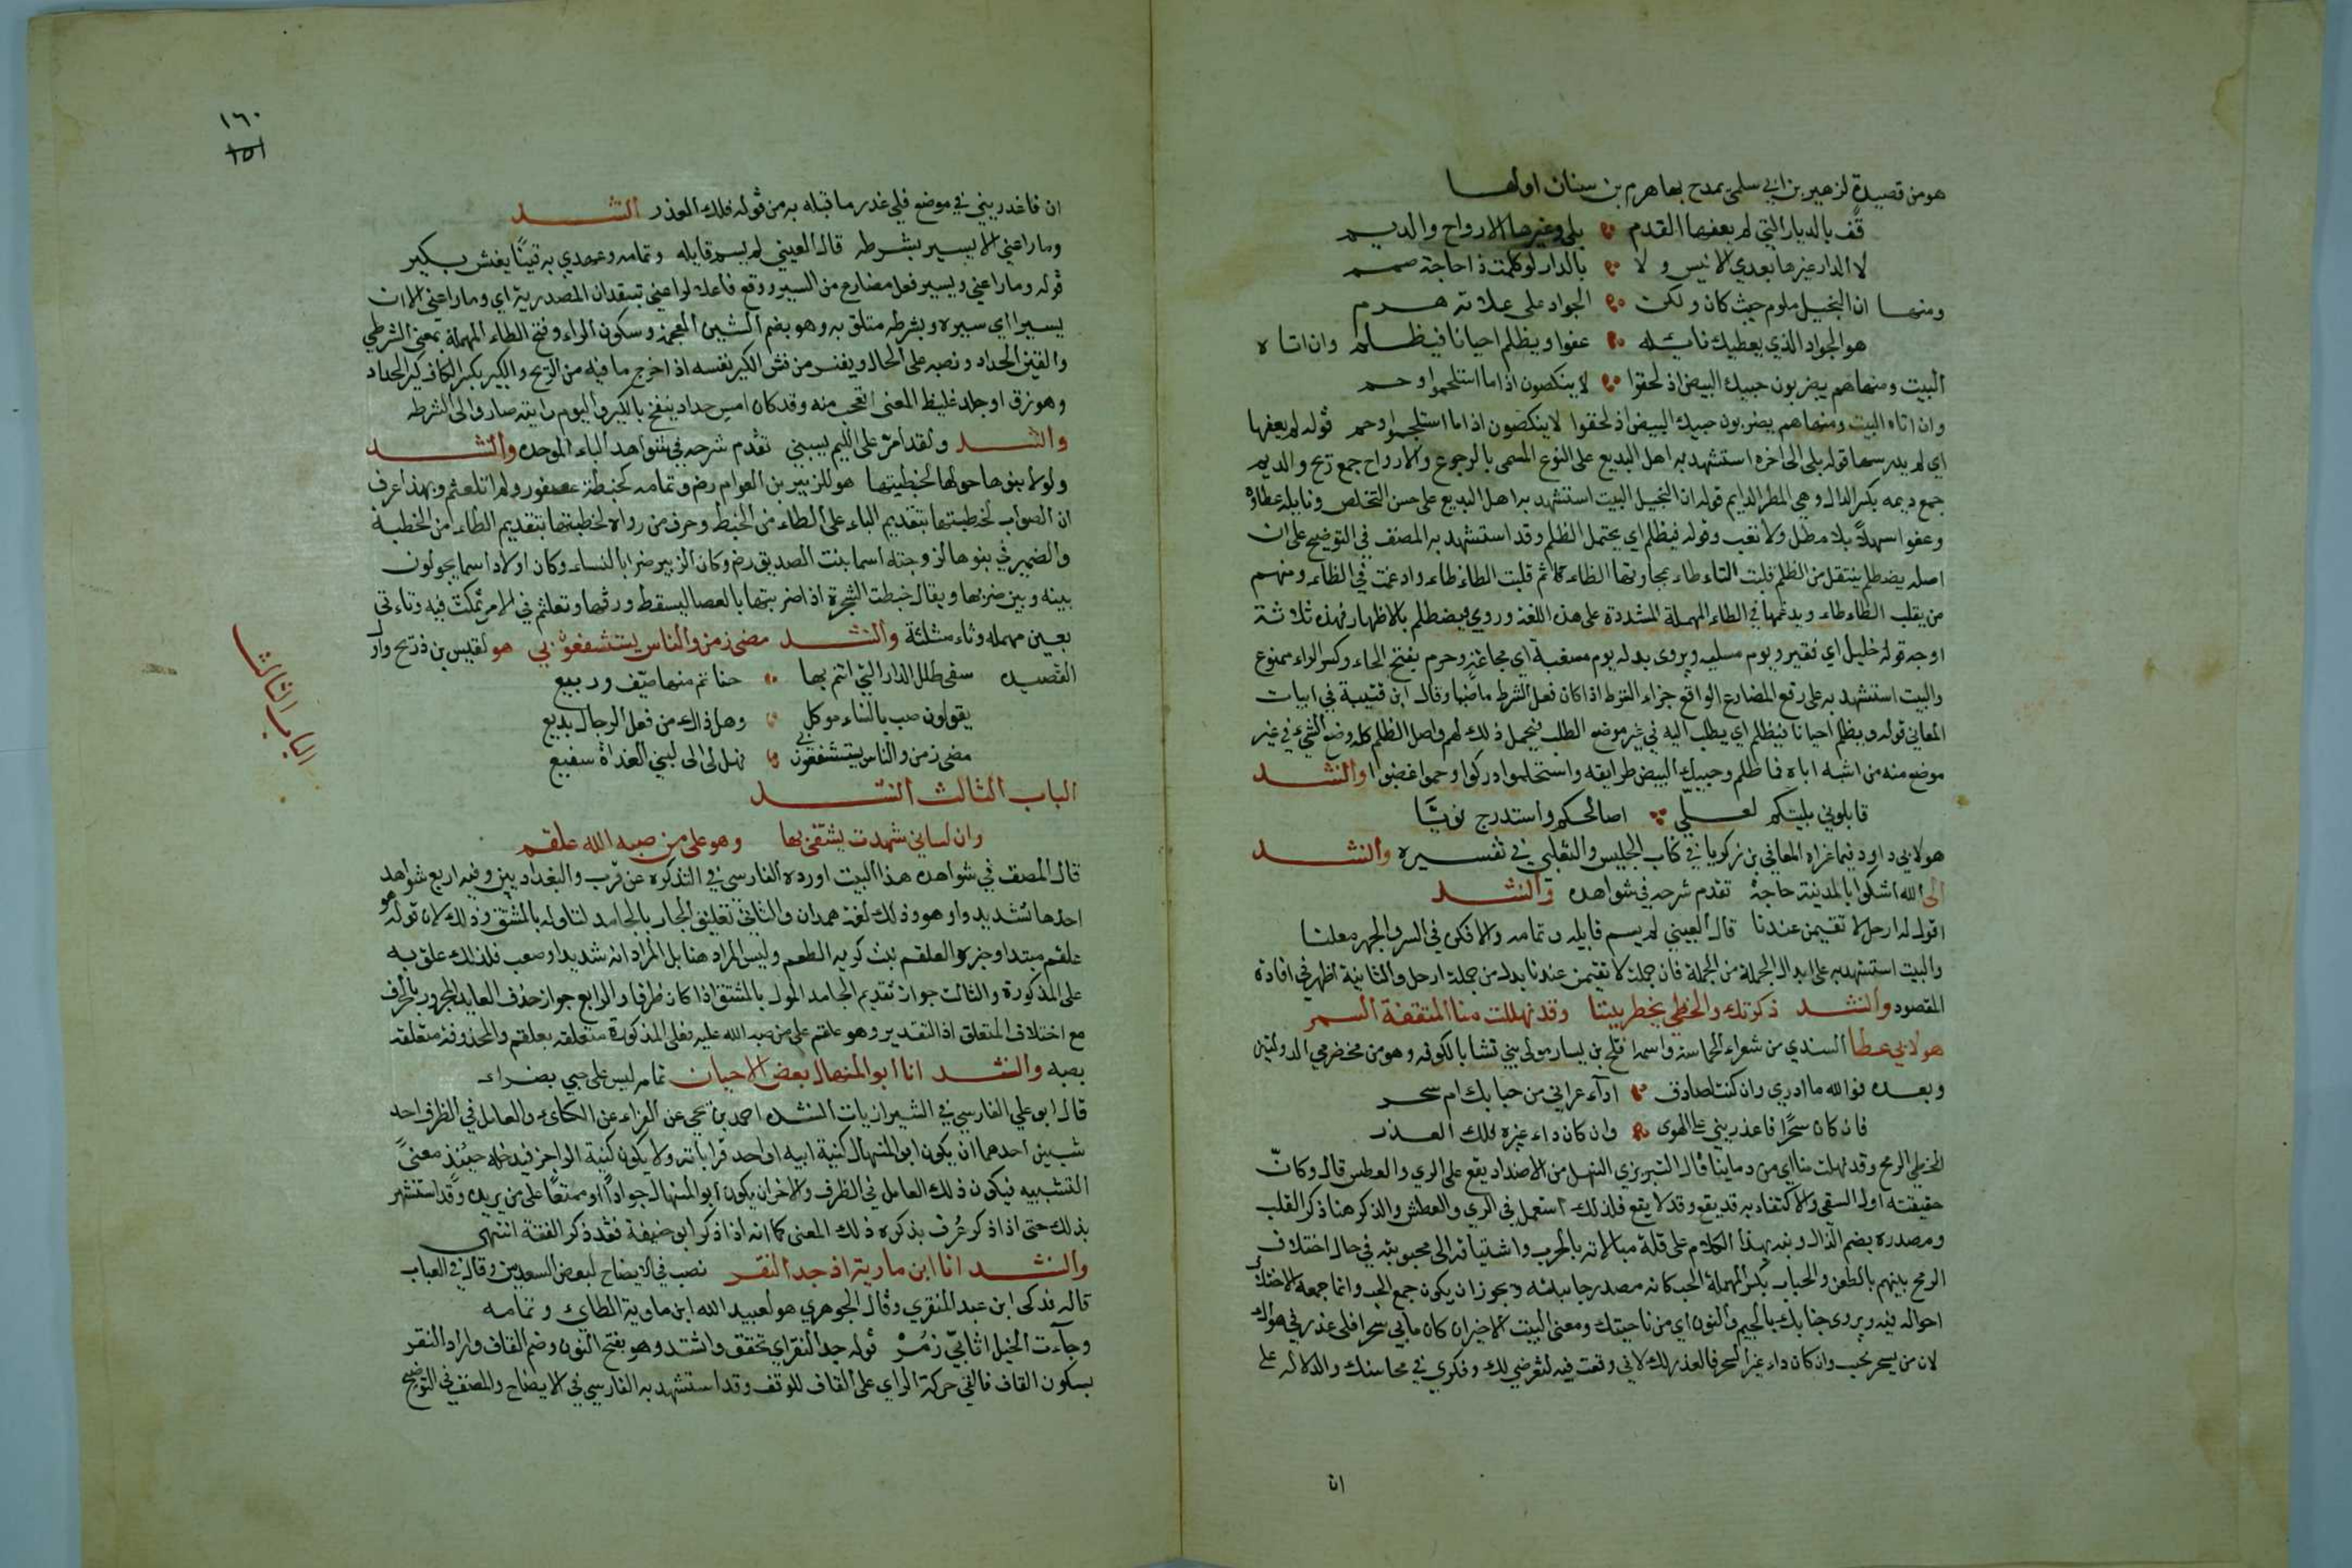 هو من قصيدة لزهير بن ابي سلمى يمدح بها هرم بن سنان اولها
قف بالديار التي لم يعفها القدم بلى وغيرها الارواح والديم
لا الدار غيرها بعدي الانيس ولا بالدار لو كلمت ذا حاجة صمم
ومنها ان البخيل ملوم حيث كان ولكن الجواد على علاته هرم
هو الجواد الذي يعطيك نائله عفوا ويظلم احيانا فيظلم وان اتاه
البيت ومنها هم يضربون حبيك البيض اذ لحقوا لا ينكصون اذا ما استلحموا وحموا
وان اتاه البيت ومنها هم يضربون حبيك البيض اذ لحقوا لا ينكصون اذا ما استلحموا وحموا قوله لم يعفها
اي لم يدرسها قوله بلى الى اخره استشهد به اهل البديع على النوع المسمى بالرجوع والارواح جمع ريح والديم
جمع ديمه بكسر الدال وهي المطر الدايم قوله ان البخيل البيت استشهد به اهل البديع على حسن التخلص ونايله عطاؤه
وعفوا سهلا بلا مطل ولا تعب وقوله فيظلم اي يحتمل الظلم وقد استشهد به المصنف في التوضيح على ان
اصله يضطلم يفتعل من الظلم قلبت التاء طاء بمجاورتها الظاء ثم قلبت الطاء ظاء وادغمت في الظاء ومنهم
من يقلب الظاء طاء ويدغمها في الطاء المهملة المشددة على هذه اللغة وروي فيضطلم بالاظهار فهذه ثلاثة
اوجه قوله خليل اي فقير ويوم مسلبه ويروى بدله يوم مسغبة اي مجاعة وحرم بفتح الحاء وكسر الراء ممنوع
والبيت استشهد به على رفع المضارع الواقع جزاء الشرط اذا كان فعل الشرط ماضيا وقال ابن قتيبة في ابيات
المعاني قوله ويظلم احيانا فيظلم اي يطلب اليه في غير موضع الطلب فيحمل ذلك لهم واصل الظلم كله وضع الشيء في غير
موضعه من اشبه اباه فما ظلم وحبيك البيض طرايقه واستلحموا ادركوا وحموا غضبوا وانشد
فابلوني بليتكم لعلي اصالحكم واستدرج نويا
هو لابي داود فيما عزاه المعافي بن زكريا في كتاب الجليس والثعلبي في تفسيره وانشد
الى الله اشكوا بالمدينة حاجة تقدم شرحه في شواهد وانشد
اقول له ارحل لا تقيمن عندنا قال العيني لم يسم قايله وتمامه والا فكن في السر والجهر معلنا
والبيت استشهد به على ابدال الجملة من الجملة فان جملة لا تقيمن عندنا بدل من جملة ارحل والثانية اظهر في افادة
المقصود وانشد ذكرتك والخطي يخطر بيننا وقد نهلت منا المثقفة السمر
هو لابي عطا السندي من شعراء الحماسة واسمه افلح بن يسار مولى بني نشا بالكوفه وهو من مخضرمي الدولتين
وبعده فوالله ما ادري وان كنت لصادق اداء عراني من حبابك ام سحر
فان كان سحرا فاعذريني على الهوى وان كان داء غيره فلك العذر
الخطي الرمح وقد نهلت منا اي من دماينا قال التبريزي النهل من الاضداد يقع على الري والعطش قال وكان
حقيقته اول السقي والاكتفاء به قد يقع وقد لا يقع فلذلك استعمل في الري والعطش والذكر هنا ذكر القلب
ومصدره بضم الذال ونبه بهذا الكلام على قلة مبالاته بالحرب واشتياقه الى محبوبته في حال اختلاف
الرمح بينهم بالطعن والحباب بكسر المهملة الحب كانه مصدر حاببته ويجوز ان يكون جمع الحب وانما جمعه لاختلاف
احواله فيه ويروى جنابك بالجيم والنون اي من ناحيتك ومعنى البيت الاخير ان كان ما بي سحرا فلي عذر في هواك
لان من يسحر يحب وان كان داء غير السحر فالعذر لك لاني وقعت فيه لتعرضي لك وفكري في محاسنك والدلاله على
ان
١٦٠
١٥١
ان فاعذريني في موضع فلي عذر ما قبله به من قوله فلك العذر انشد
وما راعني الا يسير بشرطه قال العيني لم يسم قايله وتمامه وعهدي به قينا يفش بكير
قوله وما راعني ويسير فعل مضارع من السير ووقع فاعلا لراعني بتقدير ان المصدرية اي وما راعني الا ان
يسير اي سيره وبشرطه متعلق به وهو بضم الشين المعجمة وسكون الراء وفتح الطاء المهملة بمعنى الشرطي
والقين الحداد ونصبه على الحال ويفش من فش الكير نفسه اذا اخرج ما فيه من الريح والكير بكسر الكاف كير الحداد
وهو زق او جلد غليظ المعنى اتعجب منه وقد كان امس حداد ينفخ بالكير واليوم رايته صار والي الشرطه
وانشد ولقد امر على اللئيم يسبني تقدم شرحه في شواهد الباء الموحده وانشد
ولولا بنوها حولها لخبطتها هو للزبير بن العوام رض وتمامه كخبطة عصفور ولم اتلعثم وبهذا عرف
ان الصواب لخبطتها بتقديم الباء على الطاء من الخبط وحرف من رواه لخطبتها بتقديم الطاء من الخطبة
والضمير في بنوها لزوجته اسما بنت الصديق رض وكان الزبير ضرابا للنساء وكان اولاد اسما يحولون
بينه وبين ضربها ويقال خبطت الشجرة اذا ضربتها بالعصا ليسقط ورقها وتعلثم في الامر تمكث فيه وتاءتى
بعين مهمله وثاء مثلثة وانشد مضى زمن والناس يستشفعون بي هو لقيس بن ذريح واول
القصيده سقى طلل الدار التي انتم بها حنا ثم منها صيف وربيع
يقولون صب بالنساء موكل وهل ذاك من فعل الرجال بديع
مضى زمن والناس يستشفعون بي فهل لي الى لبنى الغداة شفيع
الباب الثالث
الباب الثالث انشد
وان لساني شهدت يشتفى بها وهو على من صبه الله علقم
قال المصنف في شواهده هذا البيت اورده الفارسي في التذكره عن قرب والبغداديين وفيه اربع شواهد
احدها تشديد واو هو وذلك لغة همدان والثاني تعليق الجار بالجامد لتاوله بالمشتق وذلك لان قوله هو
علقم مبتدا وخبر والعلقم نبت كريه الطعم وليس المراد هنا بل المراد انه شديد او صعب فلذلك علق به
على المذكورة والثالث جواز تقديم الجامد المول بالمشتق اذا كان ظرفا والرابع جواز حذف العايد المجرور بالحرف
مع اختلاف المتعلق اذ التقدير وهو علقم على من صبه الله عليه فعلى المذكورة متعلقه بعلقم والمحذوفه متعلقه
بصبه وانشد انا ابو المنهال بعض الاحيان تمامه ليس على حبي بضراء
قال ابو علي الفارسي في الشيرازيات انشده احمد بن يحيى عن الفراء عن الكسائي والعامل في الظرف احد
شيئين احدهما ان يكون ابو المنهال كنية ابيه او احد قراباته ولا يكون كنية الواجز فيدخله حينئذ معنى
التشبيه فيكون ذلك العامل في الظرف والاخر ان يكون ابو المنهال جوادا او ممتنعا على من يريده وقد استشهر
بذلك حتى اذا ذكر عرف بذكره ذلك المعنى كما انه اذا ذكر ابو حنيفة فقد ذكر الفقه انتهى
وانشد انا ابن ماوية اذ جد النقر نصب في الايضاح لبعض السعديين وقال في العباب
قاله فدكى ابن عبد المنقري وقال الجوهري هو لعبيد الله ابن ماوية الطائي وتمامه
وجاءت الخيل اثابي زمر قوله جد النقر اي تحقق واشتد وهو بفتح النون وضم القاف واراد النقر
بسكون القاف فالقى حركة الراي على القاف للوقف وقد استشهد به الفارسي في الايضاح والمصنف في التوضيح